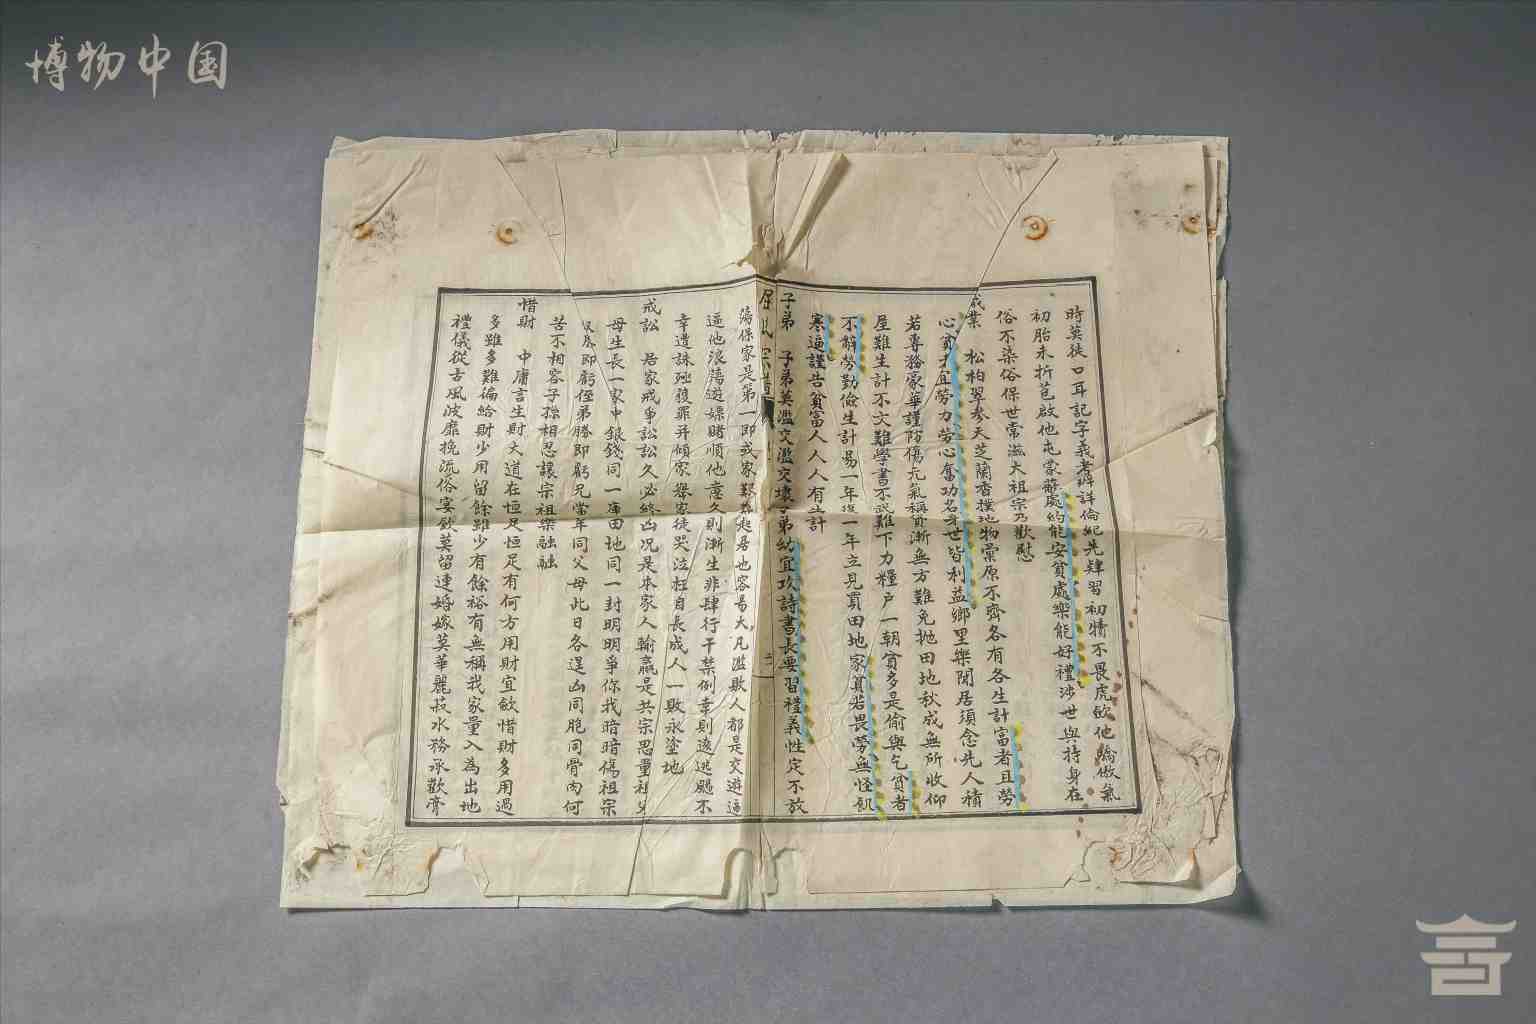 博物中国
時莫徒口耳記字義考詳倫紀先肄習初犢不畏虎飲他驕傲氣
初胎未折苞啟他屯蒙蔽處約能安貧處樂能好禮涉世與持身在
俗不染俗保世常滋大祖宗乃歡慰
業 松柏翠參天芝蘭香撲地物彙原不齊各有各生計富者且勞
心貧才宜勞力勞心奮功名身世皆利益鄉里樂閒居須念先人積
若專務豪華謹防傷元氣稱貸漸無方難免拋田地秋成無所收仰
屋難生計不文難學書不武難下力糧戶一朝貧多是偷與乞貧者
不辭勞勤儉生計易一年復一年立見買田地家貧若畏勞無怪飢
寒逼謹告貧富人人人有生計
子弟 子弟莫濫交濫交壞子弟幼宜攻詩書長要習禮義性定不放
蕩保家是第一即或家艱難起居也容易大凡濫敗人都是交遊逼
逼他浪蕩遊嫖賭順他意久則漸生非肆行干禁例幸則逸逃颺不
幸遭誅殛獲罪并傾家舉家徒哭泣枉自長成人一敗永塗地
戒訟 居家戒爭訟訟久必終凶况是本家人輸贏是共宗思量祖父
母生長一家中銀錢同一庫田地同一封明明爭你我暗暗傷祖宗
即虧侄弟勝即虧兄當年同父母此日各逞凶同胞同骨肉何
苦不相容子孫相忍讓宗祖樂融融
惜財 中庸言生財大道在恒足恒足有何方用財宜飲惜財多用過
多雖多難徧給財少用留餘雖少有餘裕有無稱我家量入為出地
禮儀從古風波靡挽流俗宴飲莫留連婚嫁莫華麗菽水務承歡膏